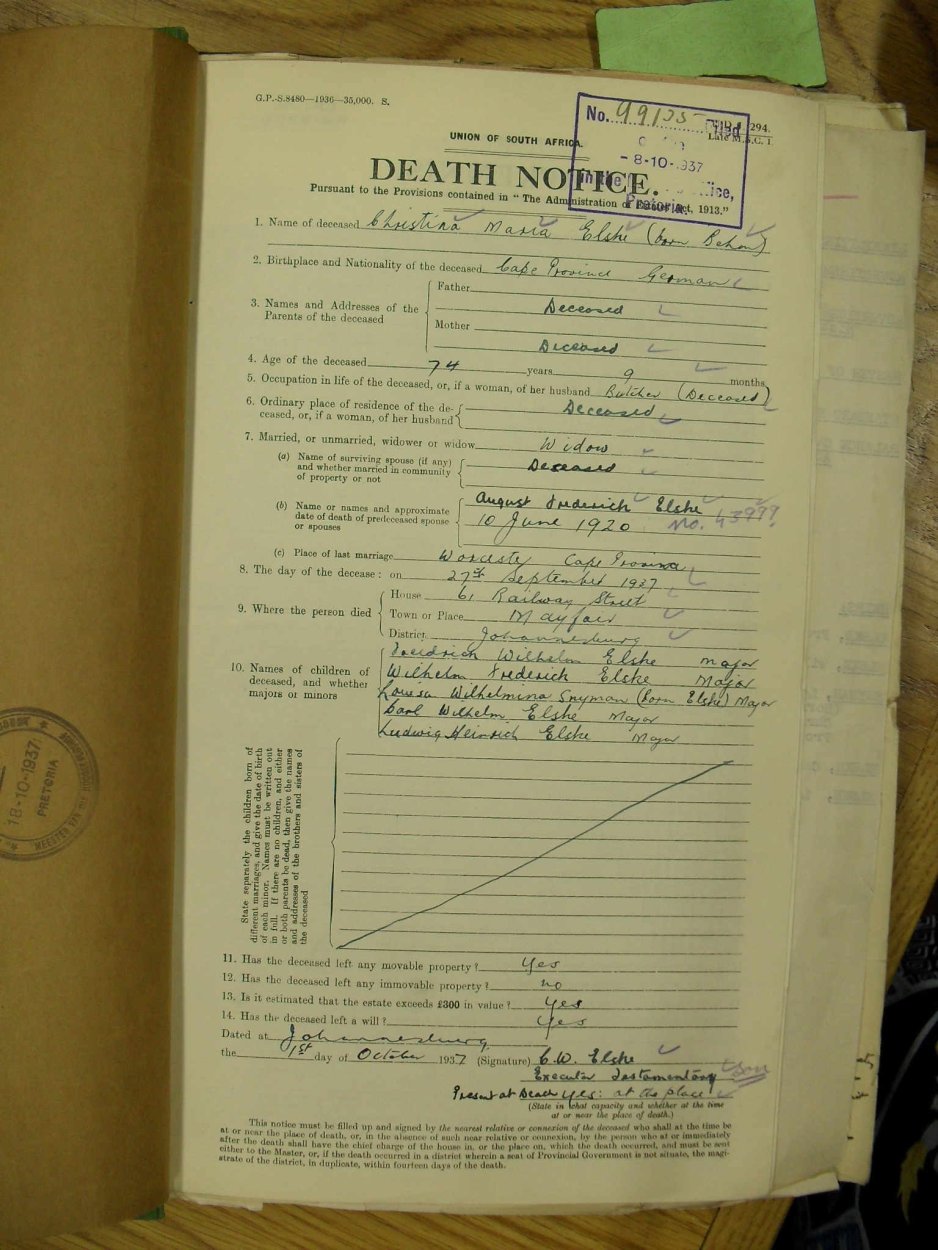 G.P.-S.8480—1936—35,000. S.
No. 99135 Filed
294.
Late M.S.C. 1.
UNION OF SOUTH AFRICA.
- 8-10-1937
DEATH NOTICE.
in the Office,
Pretoria
Pursuant to the Provisions contained in "The Administration of Estates Act, 1913."
1. Name of deceased Christina Maria Elske (born Behm)
2. Birthplace and Nationality of the deceased Cape Province German
3. Names and Addresses of the Parents of the deceased
Father
Deceased
Mother
Deceased
4. Age of the deceased 74 years 9 months
5. Occupation in life of the deceased, or, if a woman, of her husband Butcher (Deceased)
6. Ordinary place of residence of the de-
ceased, or, if a woman, of her husband
Deceased
7. Married, or unmarried, widower or widow Widow
(a) Name of surviving spouse (if any)
and whether married in community
of property or not
Deceased
(b) Name or names and approximate
date of death of predeceased spouse
or spouses
August Frederick Elske
10 June 1920 No. 43999
(c) Place of last marriage Worcester Cape Province
8. The day of the decease: on 27th September 1937
9. Where the person died
House 61 Railway Street
Town or Place Mayfair
District Johannesburg
10. Names of children of
deceased, and whether
majors or minors
Friedrich Wilhelm Elske Major
Wilhelm Frederick Elske Major
Louisa Wilhelmina Snyman (born Elske) Major
Carl Wilhelm Elske Major
Ludwig Heinrich Elske Major
State separately the children born of
different marriages, and give the date of birth
of each minor. Names must be written out
in full. If there are no children, and either
or both parents be dead, then give the names
and addresses of the brothers and sisters of
the deceased
18-10-1937
PRETORIA
MEESTER VAN
11. Has the deceased left any movable property? Yes
12. Has the deceased left any immovable property? no
13. Is it estimated that the estate exceeds £300 in value? Yes
14. Has the deceased left a will? Yes
Dated at Johannesburg
the 1st day of October 1937 (Signature) C.W. Elske
Executor Testamentary Son
Present at Death yes: at the place
(State in what capacity and whether at the time
or near the place of death.)
This notice must be filled up and signed by the nearest relative or connexion of the deceased who shall at the time be
at or near the place of death, or, in the absence of such near relative or connexion, by the person who at or immediately
after the death shall have the chief charge of the house in, or the place on, which the death occurred, and must be sent
either to the Master, or, if the death occurred in a district wherein a seat of Provincial Government is not situate, the magi-
strate of the district, in duplicate, within fourteen days of the death.